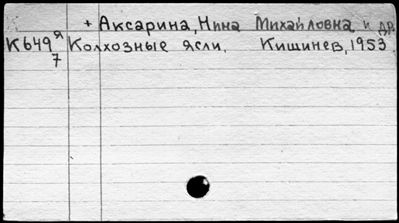 + Аксарина, Нина Михайловна и др.
К649я Колхозные ясли. Кишинев, 1953.
7